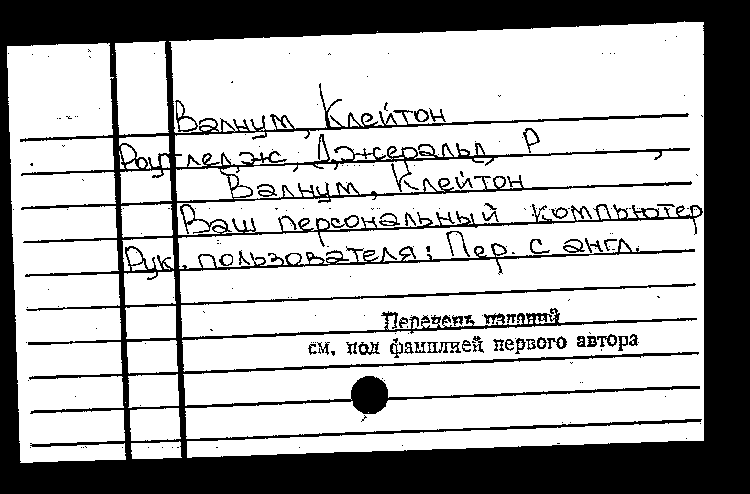 Валнум, Клейтон
Раутледж, Джеральд Р ,
Валнум, Клейтон
Ваш персональный компьютер
Рук. пользователя: Пер. с англ.
Перечень изданий
см. под фамилией первого автора